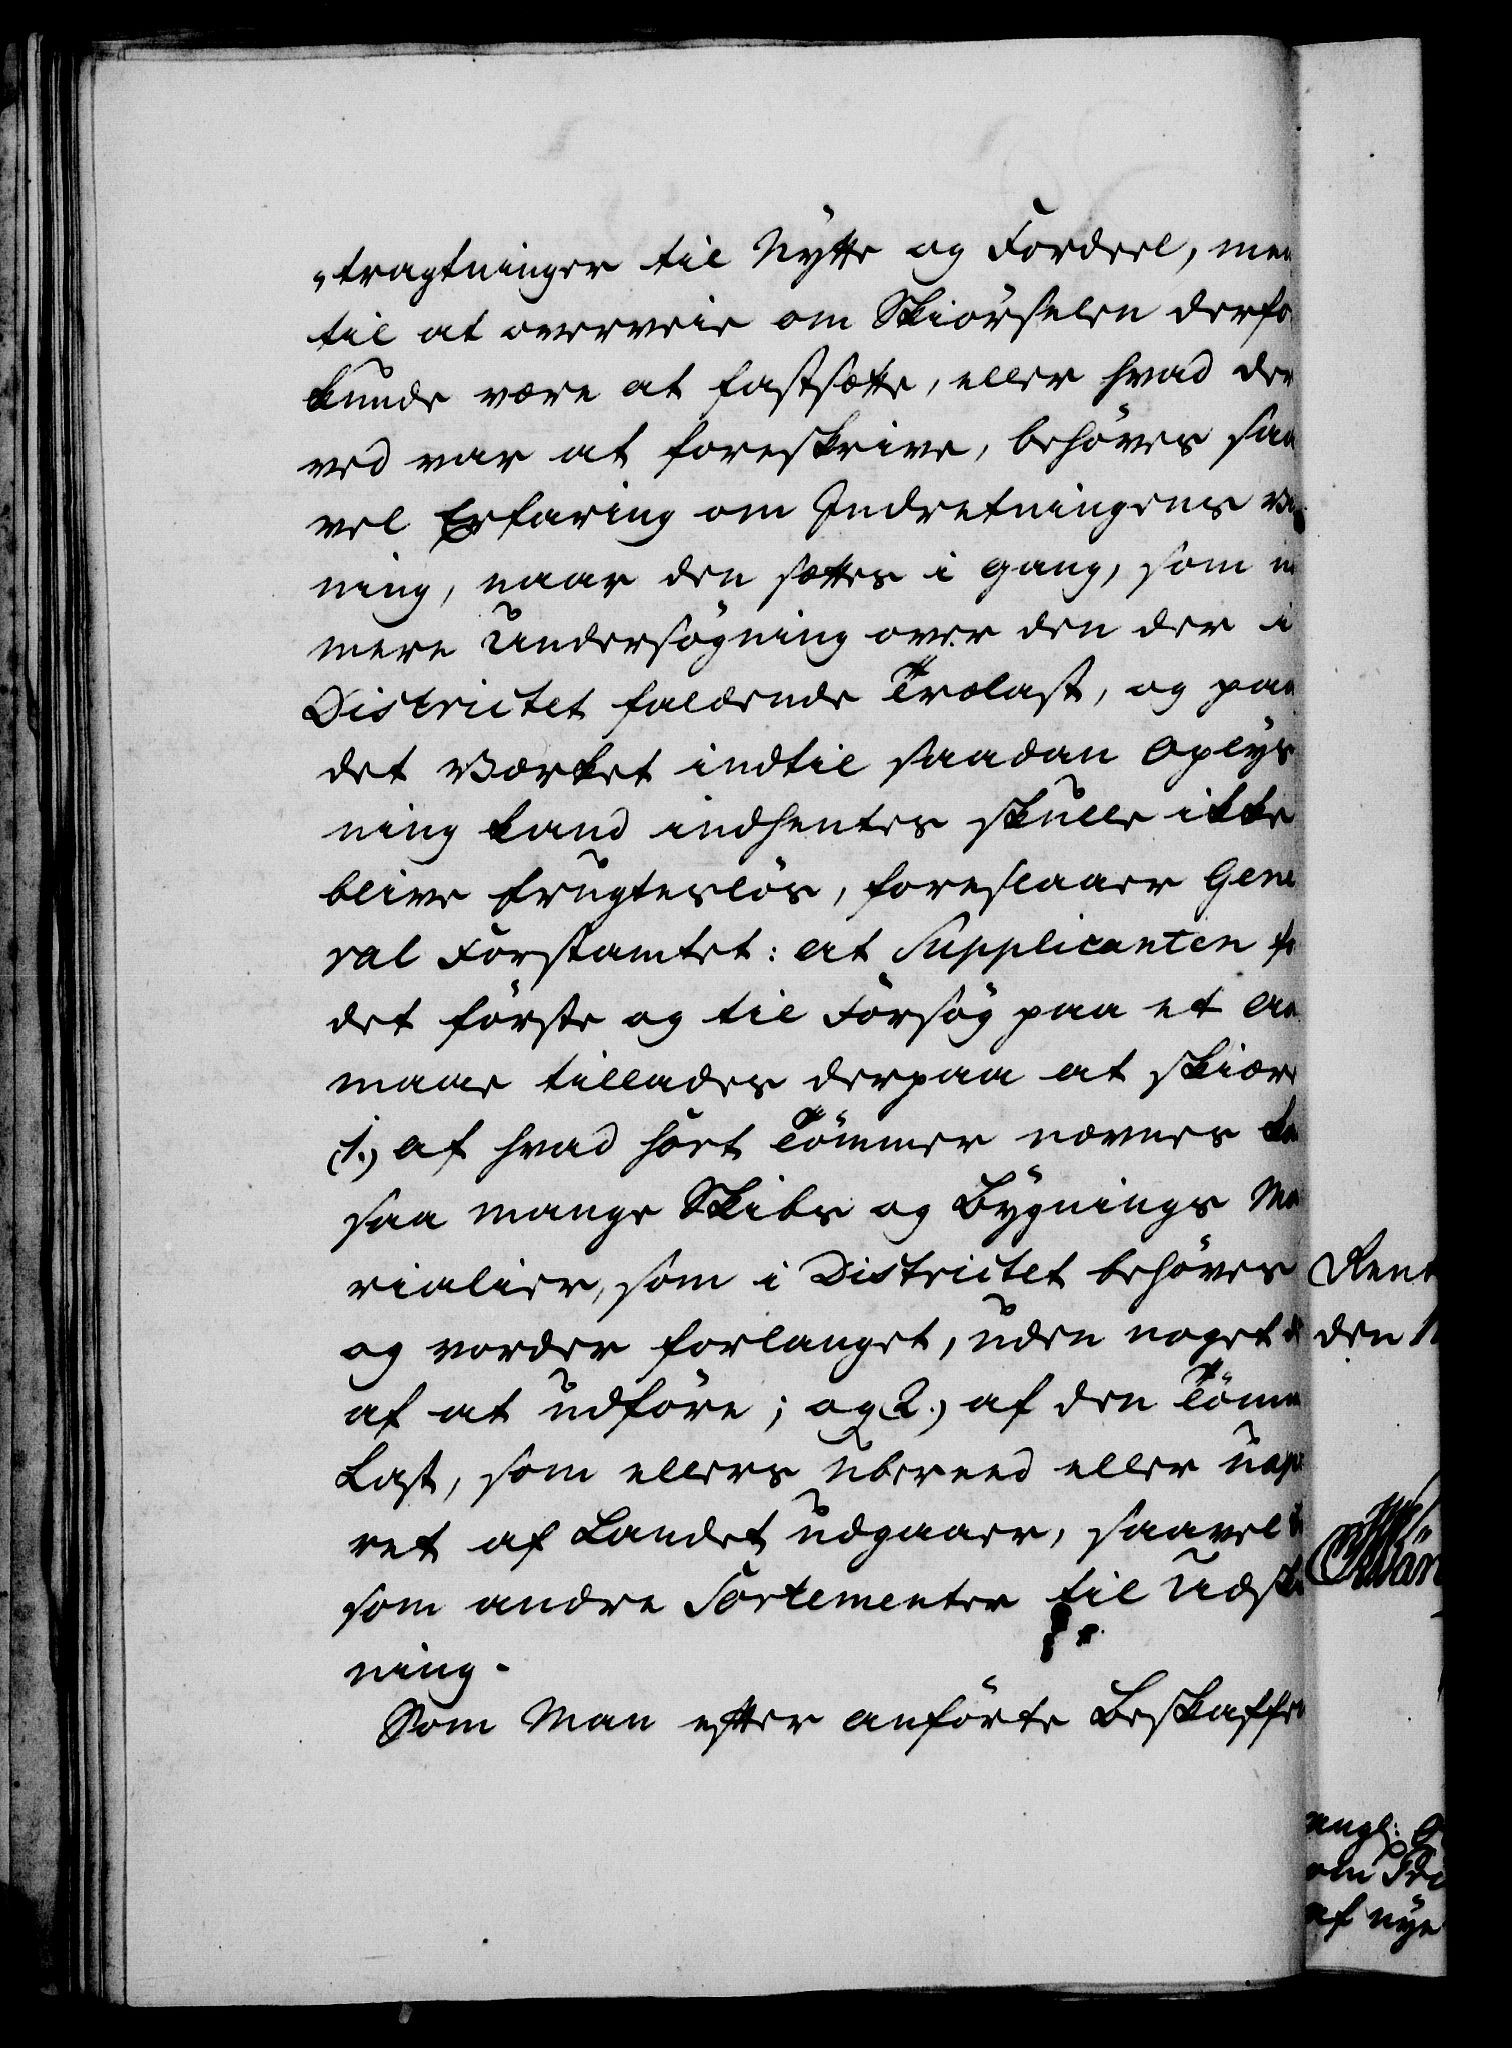 „tragtninger til Nytte og Fordeel, men
til at overveie om Skiörselen derfo
kunde være at fastsætte, eller hvad der
ved var at foreskrive, behöves saa
vel Erfaring om Indretningens
ning, naar den sættes i gang, som
mere Undersögning over den der i
Districtet faldende Trælast, og paa
det Værket indtil saadan Oplys
ning kand indhentes skulle ikke
blive frugteslös, foreslaaer Gene
ral Forstamtet: at Supplicanten
det förste og til Forsög paa et
maae tillades derpaa at skiære
(1.) af hvad sort Tömmer nævnes
saa mange Skibs og Bygnings Ma
rialier, som i Districtet behöves
og vorder forlanget, uden noget
af at udföre; og 2.) af den Tömm
Last, som ellers ubereed eller
ret af Landet udgaaer, saavel
som andre Sortementer til Udsk
ning.
Som Man efter anförte Beskaffen
Rent
den
om
af nye